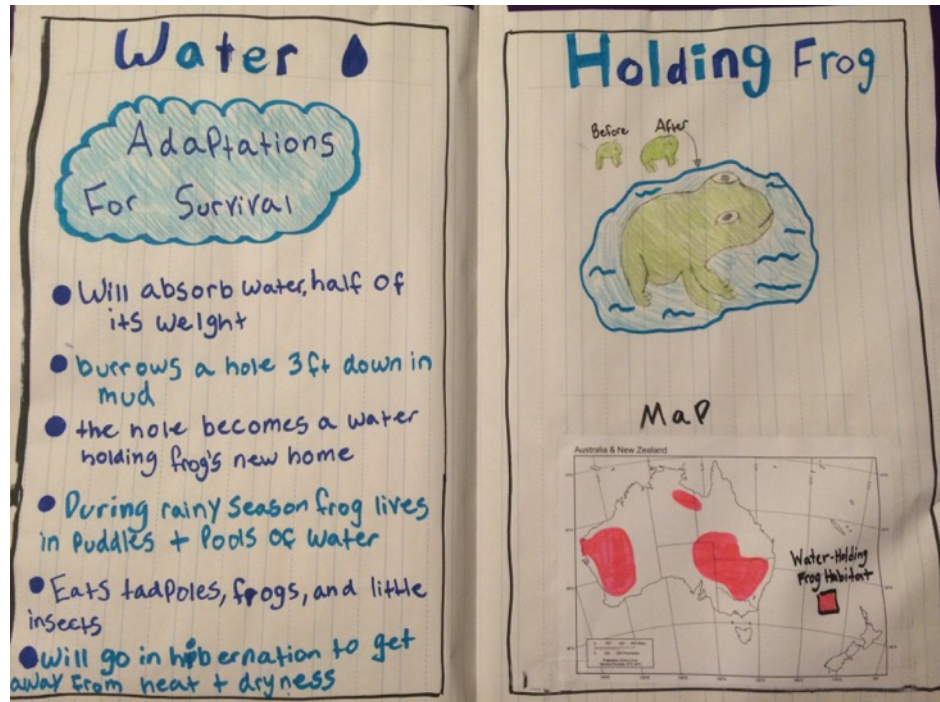 Water
Adaptations
For Survival
Will absorb water, half of
its weight
burrows a hole 3ft down in
mud
the hole becomes a water
holding frog's new home
During rainy season frog lives
in puddles + pools of water
Eats tadpoles, frogs, and little
insects
Will go in hibernation to get
away from heat + dryness
Holding Frog
Before After
Map
Australia & New Zealand
Water-Holding
Frog Habitat